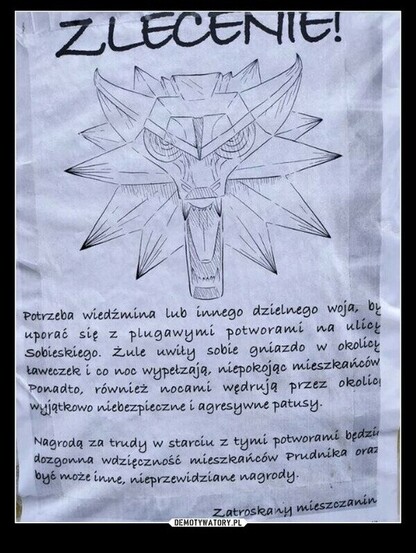 ZLECENIE!
Potrzeba wiedźmina lub innego dzielnego woja, by
uporać się z plugawymi potworami na ulicy
Sobieskiego. Żule uwiły sobie gniazdo w okolicy
ławeczek i co noc wypełzają, niepokojąc mieszkańców
Ponadto, również nocami wędrują przez okolicę
wyjątkowo niebezpieczne i agresywne patusy.
Nagrodą za trudy w starciu z tymi potworami będzie
dozgonna wdzięczność mieszkańców Prudnika oraz
być może inne, nieprzewidziane nagrody.
Zatroskany mieszczanin
DEMOTYWATORY.PL